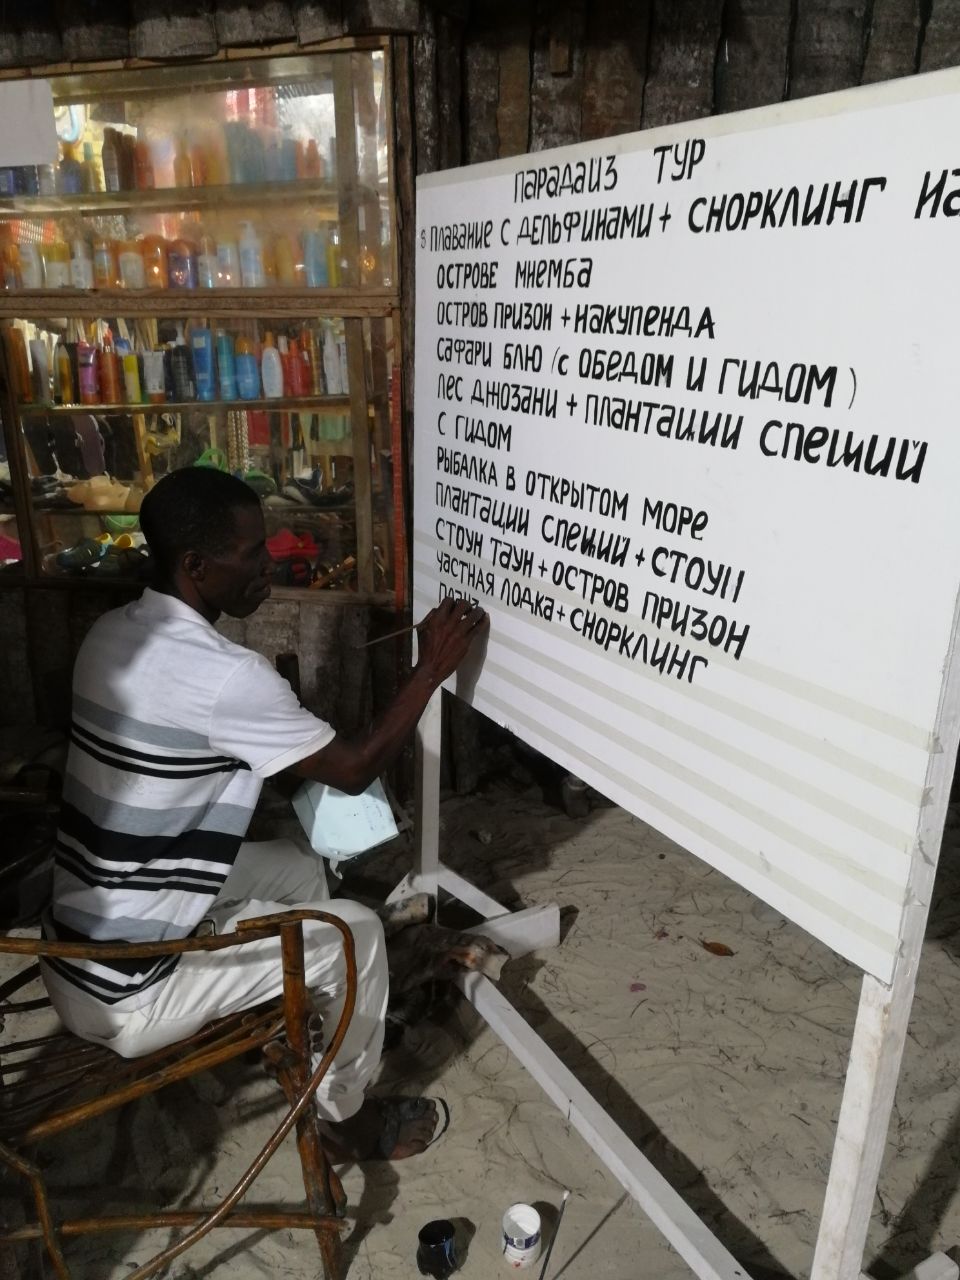 ПАРАДАЙЗ ТУР
ПЛАВАНИЕ С ДЕЛЬФИНАМИ + СНОРКЛИНГ НА
ОСТРОВЕ МНЕМБА
ОСТРОВ ПРИЗОН + НАКУПЕНДА
САФАРИ БЛЮ (С ОБЕДОМ И ГИДОМ)
ЛЕС ДЖОЗАНИ + ПЛАНТАЦИИ СПЕШИЙ
С ГИДОМ
РЫБАЛКА В ОТКРЫТОМ МОРЕ
ПЛАНТАЦИИ СПЕШИЙ + СТОУН
СТОУН ТАУН + ОСТРОВ ПРИЗОН
ЧАСТНАЯ ЛОДКА + СНОРКЛИНГ